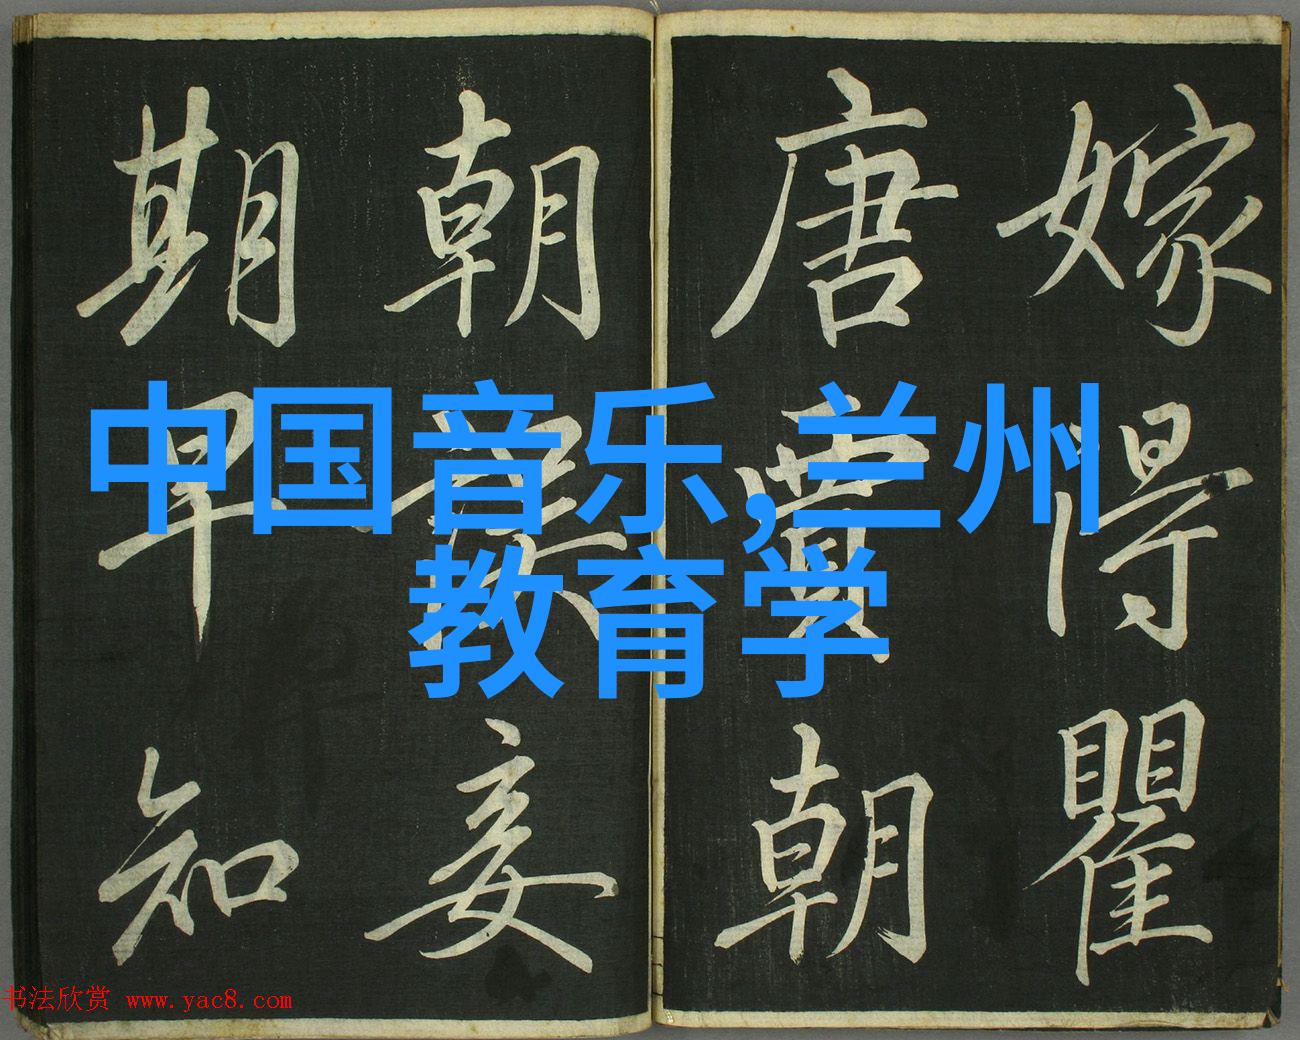 嫁得瞿
唐賈朝
朝誤妾
期早知
中国音乐,兰州
教育学
书法欣赏 www.yac8.com